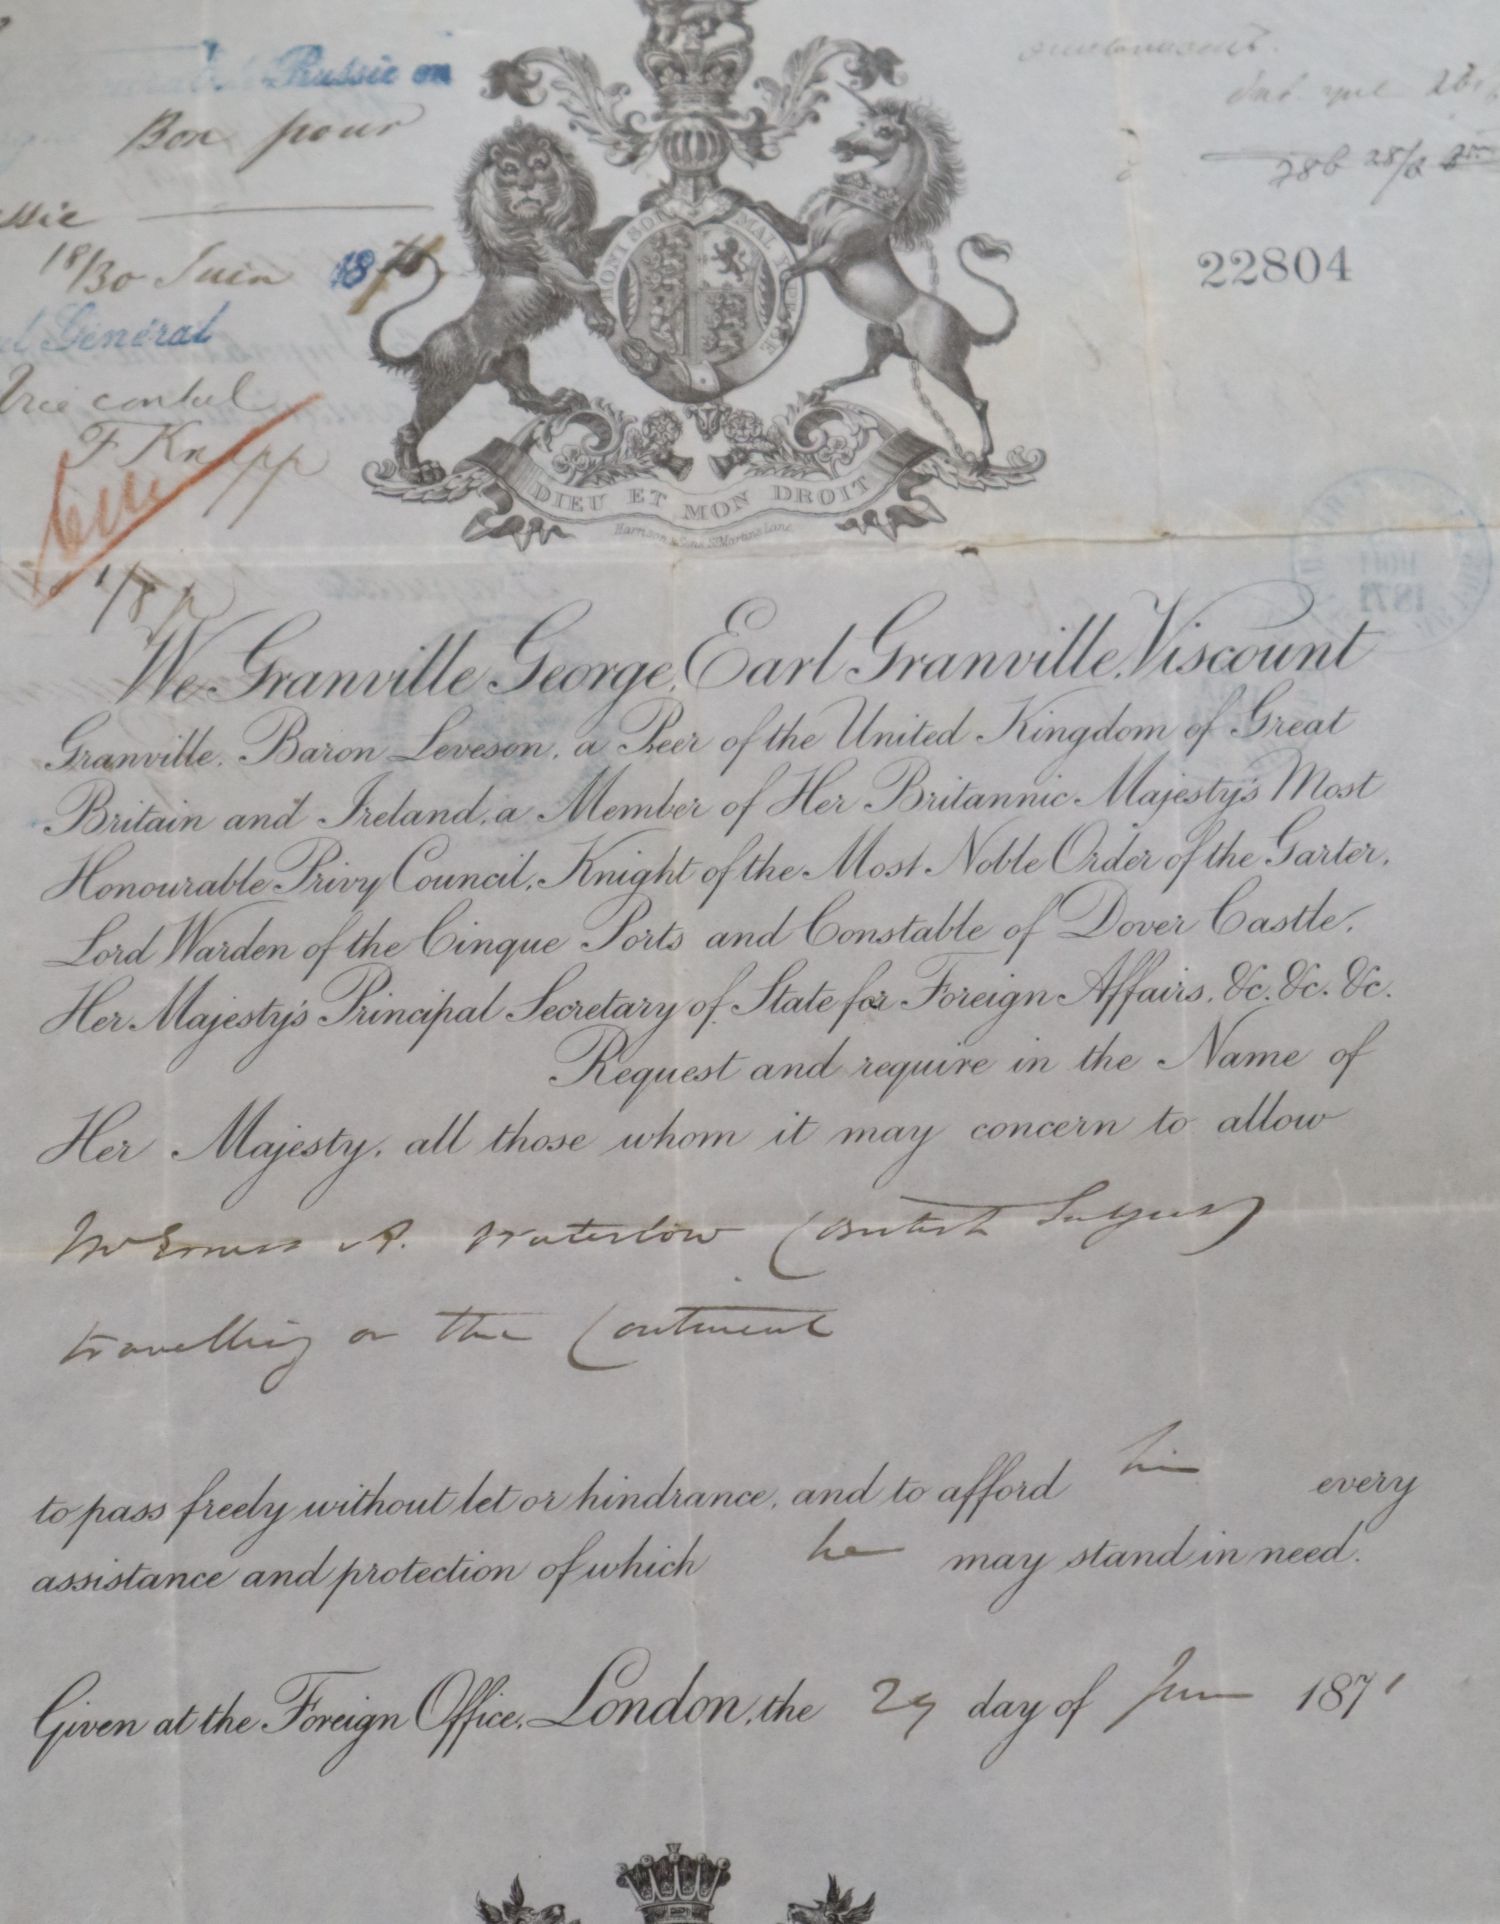 de Russie en
Bon pour
ssie
18/30 Juin 1871
l Général
Vice consul
F Knapp
1/8 p
22804
HONI SOI MAL Y PENSE
DIEU ET MON DROIT
Harrison & Sons St Martins Lane
We Granville George, Earl Granville, Viscount
Granville, Baron Leveson, a Peer of the United Kingdom of Great
Britain and Ireland, a Member of Her Britannic Majesty's Most
Honourable Privy Council, Knight of the Most Noble Order of the Garter,
Lord Warden of the Cinque Ports and Constable of Dover Castle,
Her Majesty's Principal Secretary of State for Foreign Affairs, &c. &c. &c.
Request and require in the Name of
Her Majesty, all those whom it may concern to allow
Mr Ernest A. Waterlow (British Subject)
travelling on the Continent
to pass freely without let or hindrance, and to afford him every
assistance and protection of which he may stand in need.
Given at the Foreign Office, London, the 29 day of June 1871